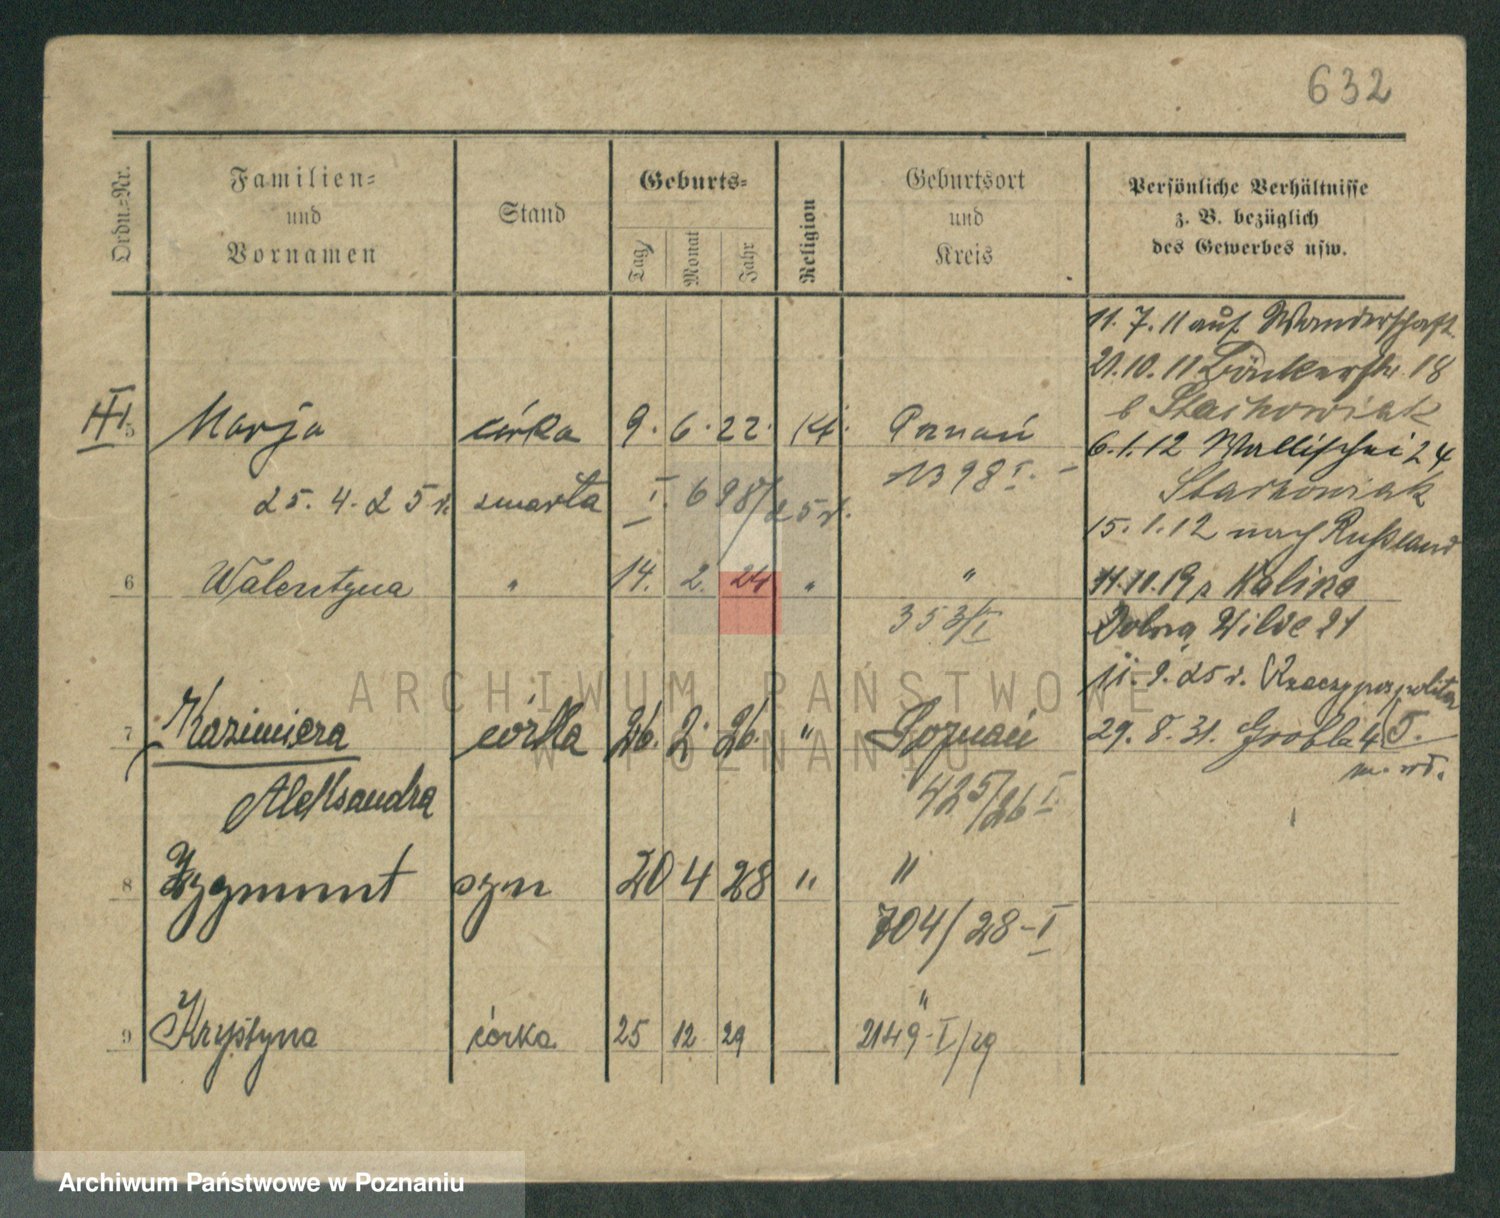 632
Ordn.-Nr.
Familien-
und
Vornamen
Stand
Geburts-
Tag
Monat
Jahr
Religion
Geburtsort
und
Kreis
Persönliche Verhältnisse
z. B. bezüglich
des Gewerbes usw.
11. 7. 11 auf Wanderschaft
21. 10. 11 18
b Stachowiak
5 Marja córka 9. 6. 22. Poznań
6. 1. 12 Wallischei 24
25. 4. 25 r. zmarła I. 698/25 r. 1398 I. -
Stachowiak
15. 1. 12 nach Russland
6 Walentyna " 14. 2. 24 " "
11. 11. 19 z Kalisza
353/I
Dolna Wilde 21
11. 9. 25 r. Rzeczypospolita
7 Kazimiera córka 26. 2. 26. " Poznań
29. 8. 31. Grobla 4
Aleksandra 425/26 I
8 Zygmunt syn 20 4 28 " "
704/28-I
9 Krystyna córka 25 12 29 "
2149-I/29
ARCHIWUM PAŃSTWOWE
W POZNANIU
Archiwum Państwowe w Poznaniu